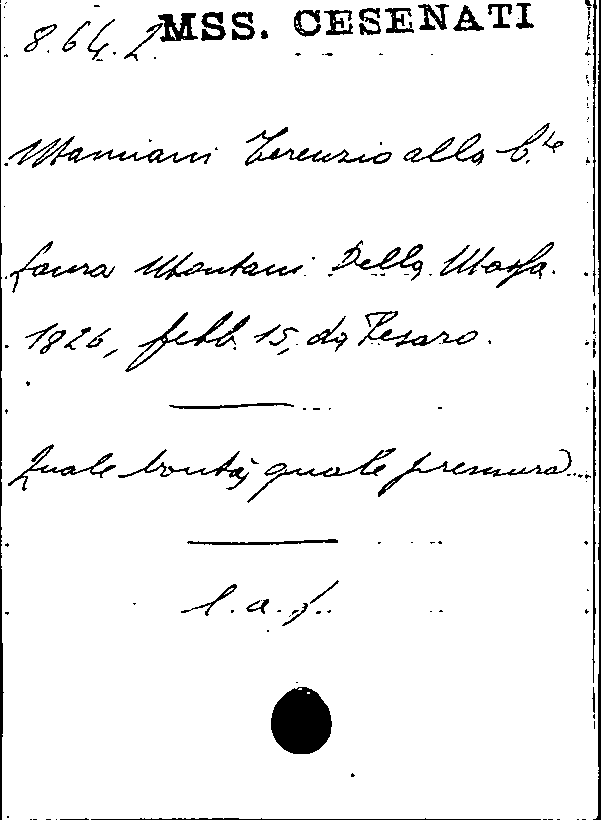 MSS. CESENATI
8.64.2
Mamiani Terenzio alla C.te
Laura Montani Della Massa.
1826, febb. 15, da Pesaro.
Quale bontà, quale premura...
l. a. f.